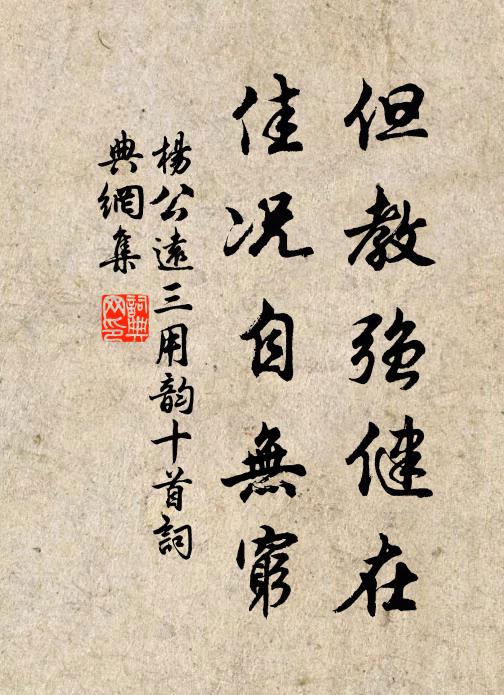 但教強健在
佳况自無窮
楊公遠三用韵十首詞
典網集
詞典网印